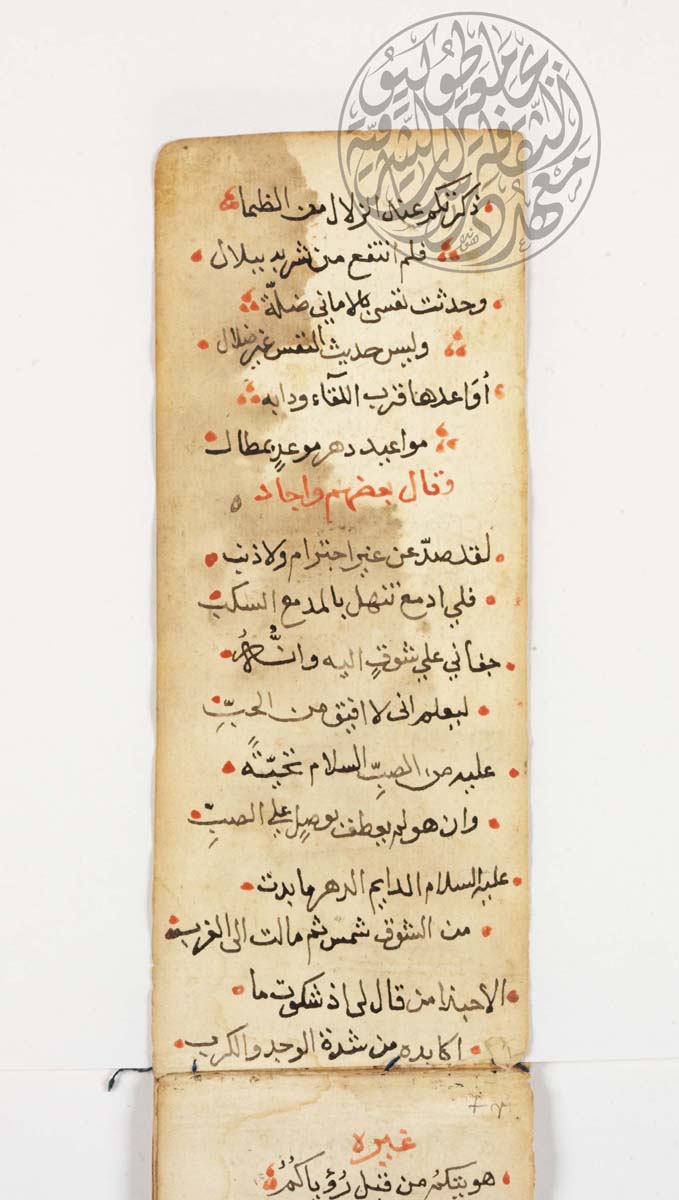 ذكرتكم عند الزلال من الظما
فلم انتفع من شربه ببلال
وحدثت نفسى بالامانى ضلّة
وليس حديث النفس غير ضلال
أواعدها قرب اللقآء ودابه
مواعيد دهر موعدٍ بمطال
وقال بعضهم واجاد
لقد صدّ عن غير اجترام ولا ذنب
فلي ادمع تنهل بالمدمع السكب
جفاني علي شوقٍ اليه وانَّهُ
ليعلم انى لا افيق من الحبِّ
عليه من الصبِّ السلام تحيّةً
وان هو لم يعطف بوصلٍ علي الصبِّ
عليه السلام الدايم الدهر ما بدت
من الشوق شمس ثم مالت الى الغرب
الاحبذا من قال لى اذ شكوت ما
اكابده من شدة الوجد والكرب
غيره
هويتكم من قبل رؤياكُمُ